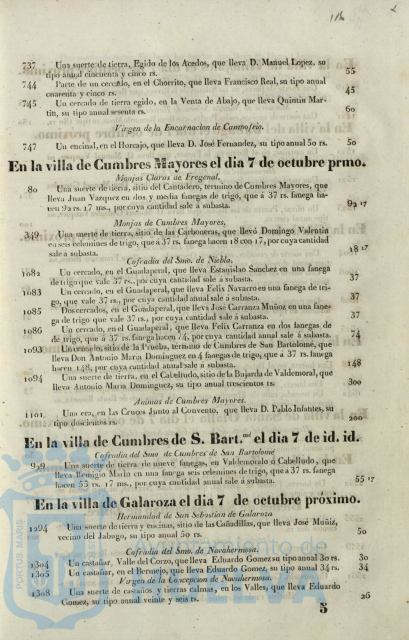 116
737 Una suerte de tierra, Egido de los Acedos, que lleva D. Manuel Lopez, su
tipo anual cincuenta y cinco rs. 55
744 Parte de un cercado, en el Chorrito, que lleva Francisco Real, su tipo anual
cuarenta y cinco rs. 45
745 Un cercado de tierra egido, en la Venta de Abajo, que lleva Quintin Mar-
tin, su tipo anual sesenta rs. 60
Virgen de la Encarnacion de Campofrio.
747 Un encinal, en el Horcajo, que lleva D. José Fernandez, su tipo anual 50 rs. 50
En la villa de Cumbres Mayores el dia 7 de octubre prmo.
Monjas Claras de Fregenal.
80 Una suerte de tierra, sitio del Cantadero, termino de Cumbres Mayores, que
lleva Juan Vazquez en dos y media fanegas de trigo, que á 37 rs. fanega ha-
cen 92 rs. 17 ms., por cuya cantidad sale á subasta. 92 17
Monjas de Cumbres Mayores.
349 Una suerte de tierra, sitio de las Carboneras, que llevó Domingo Valentin
en seis celemines de trigo, que á 37 rs. fanega hacen 18 con 17, por cuya cantidad
sale á subasta. 18 17
Cofradia del Smo. de Niebla.
1082 Un cercado, en el Guadaperal, que lleva Estanislao Sanchez en una fanega
de trigo que vale 37 rs., por cuya cantidad sale á subasta. 37
1083 Un cercado, en el Guadaperal, que lleva Felix Navarro en una fanega de tri-
go, que vale 37 rs., por cuya cantidad anual sale á subasta. 37
1085 Dos cercados, en el Guadaperal, que lleva José Carranza Muñoz en una fane-
ga de trigo que vale 37 rs., por cuya cantidad sale á subasta. 37
1086 Un cercado, en el Guadaperal, que lleva Felix Carranza en dos fanegas de
de trigo, que á 37 rs. fanega hacen 74, por cuya cantidad anual sale á subasta. 74
1093 Un cercado, sitio de la Prueba, termino de Cumbres de San Bartolomé, que
lleva Don Antonio Maria Dominguez en 4 fanegas de trigo, que á 37 rs. fanega
hacen 148, por cuya cantidad anual sale á subasta. 148
1094 Una suerte de tierra, en el Cabelludo, sitio de la Bujarda de Valdemoral, que
lleva Antonio Maria Dominguez, su tipo anual trescientos rs. 300
Animas de Cumbres Mayores.
1101 Una era, en las Cruces Junto al Convento, que lleva D. Pablo Infantes, su
tipo doscientos rs. 200
En la villa de Cumbres de S. Bart.mé el dia 7 de id. id.
Cofradia del Smo de Cumbres de San Bartolomé
929 Una suerte de tierra de nueve fanegas, en Valdemoralo ó Cabelludo, que
lleva Remigio Maria en una fanega seis celemines de trigo, que á 37 rs. fanega
hacen 55 rs. 17 ms., por cuya cantidad anual sale á subasta. 55 17
En la villa de Galaroza el dia 7 de octubre proximo.
Hermandad de San Sebastian de Galaroza
1294 Una suerte de tierra y encinas, sitio de las Cañadillas, que lleva José Muñiz,
vecino del Jabugo, su tipo anual 50 rs. 50
Cofradia del Smo. de Navahermosa.
1304 Un castañar, Valle del Corzo, que lleva Eduardo Gomez su tipo anual 30 rs. 30
1305 Un castañar, en el Bermejo, que lleva Eduardo Gomez, su tipo anual 34 rs. 34
Virgen de la Concepcion de Navahermosa.
1308 Una suerte de castaños y tierras calmas, en los Valles, que lleva Eduardo
Gomez, su tipo anual veinte y seis rs. 26
5
PORTUS MARIS
Ayuntamiento de
HUELVA